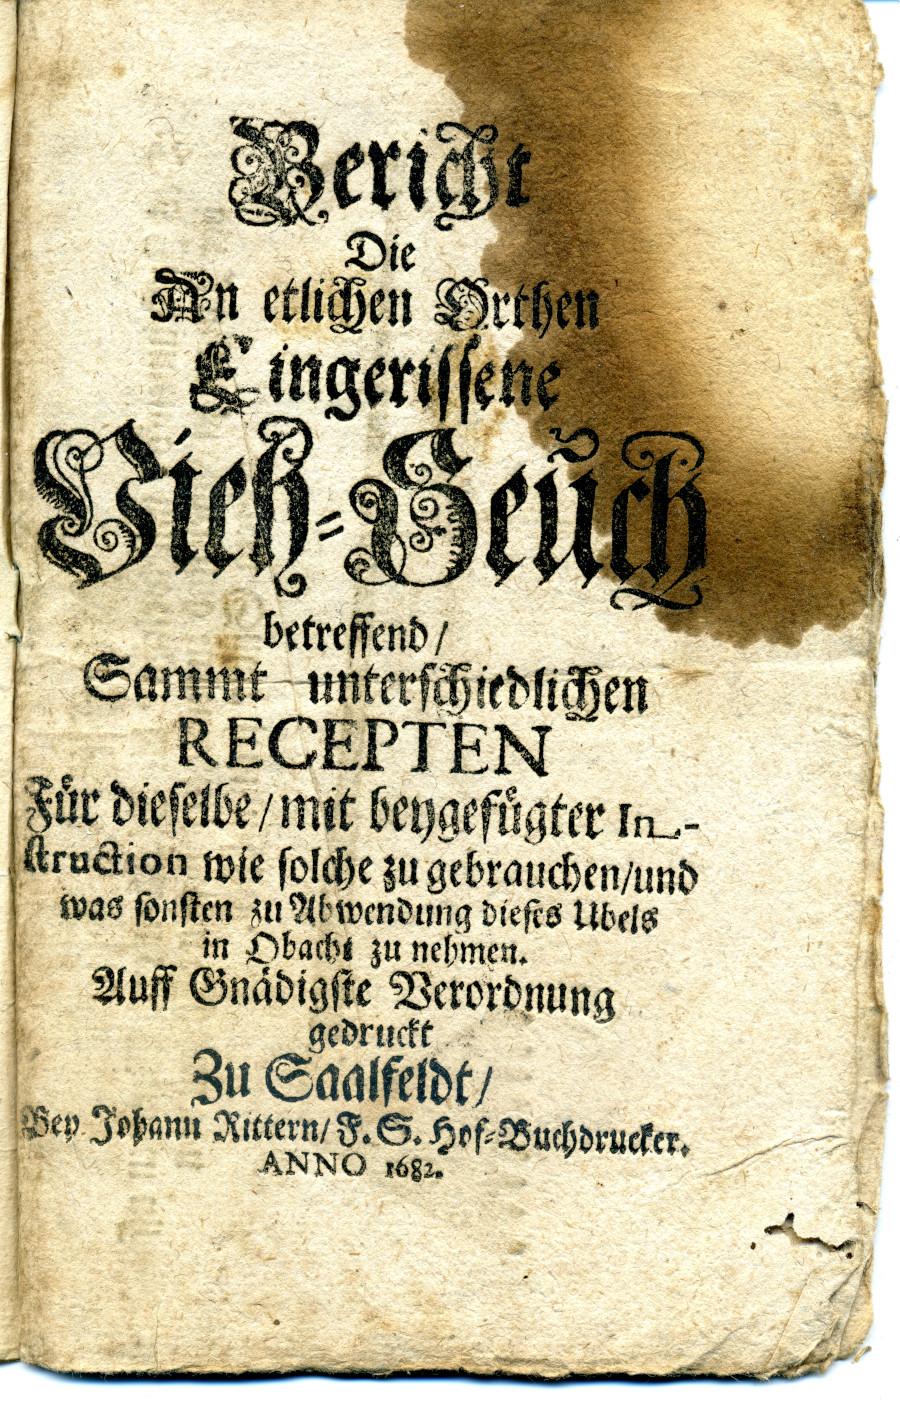 Bericht
Die
An etlichen Orthen
Eingerissene
Vieh-Seuch
betreffend/
Sammt unterschiedlichen
RECEPTEN
Für dieselbe/ mit beygefügter In-
struction wie solche zu gebrauchen/und
was sonsten zu Abwendung dieses Ubels
in Obacht zu nehmen.
Auff Gnädigste Verordnung
gedruckt
Zu Saalfeldt/
Bey Johann Rittern/ F. S. Hof-Buchdrucker.
ANNO 1682.